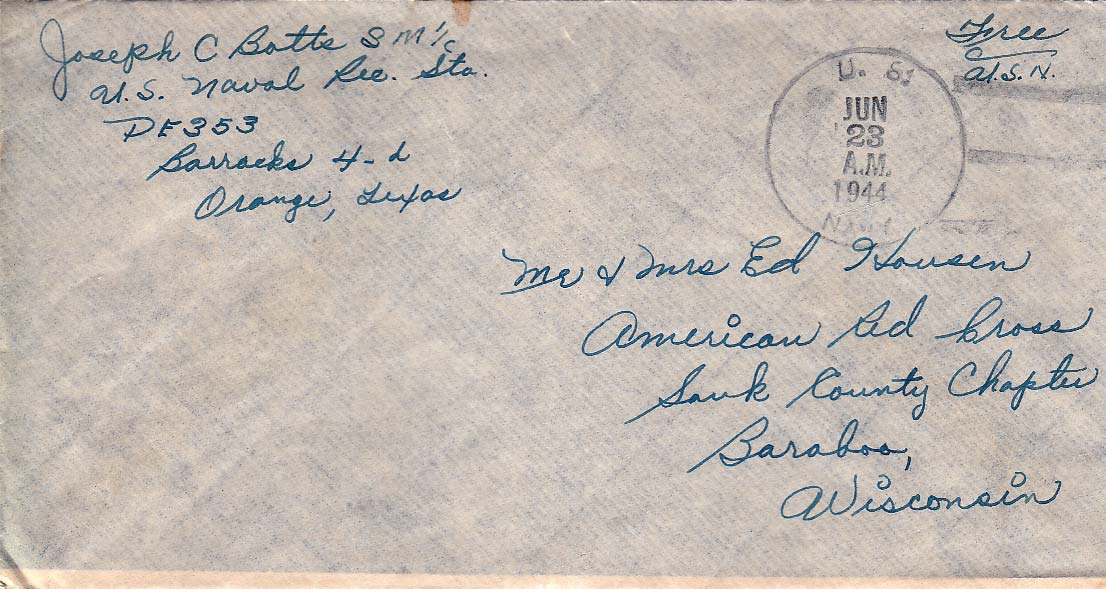 Joseph C Botts S M 1/c
U.S. Naval Rec. Sta.
DE353
Barracks 4-d
Orange, Texas
Free
U.S.N.
U. S.
JUN
23
A.M.
1944
NAVY
Mr & Mrs Ed Housen
American Red Cross
Sauk County Chapter
Baraboo,
Wisconsin